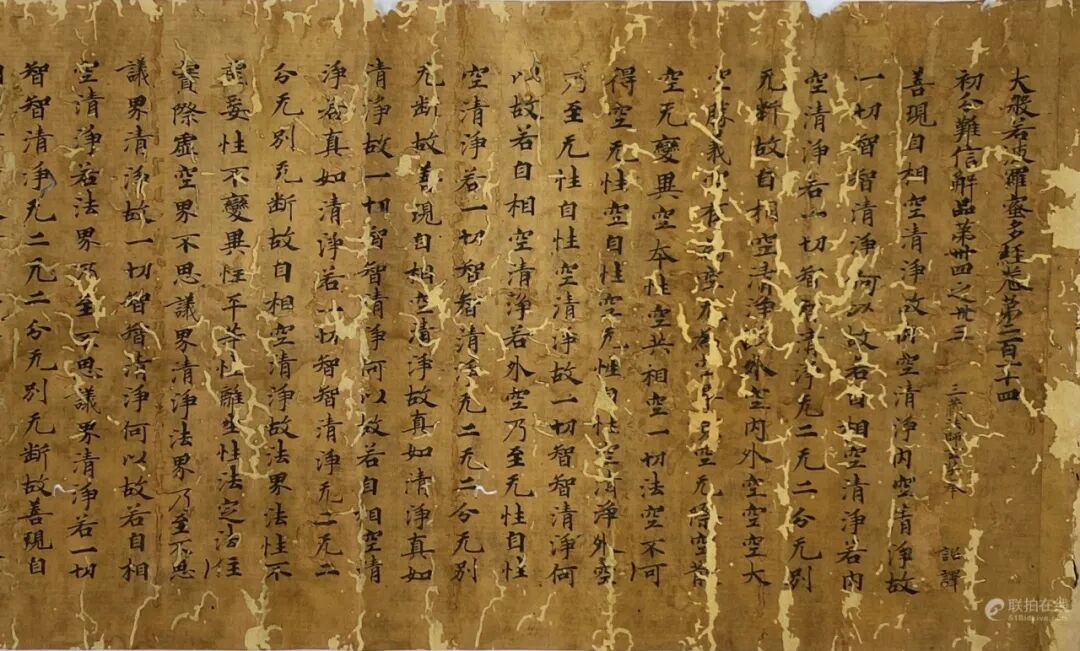 大般若波羅蜜多經卷第二百十四
初分難信解品第卅四之卅三 三藏法師玄奘奉 詔譯
善現自相空清淨故內空清淨內空清淨故
一切智智清淨何以故若自相空清淨若內
空清淨若一切智智清淨无二无二分无別
无斷故自相空清淨故外空內外空空空大
空勝義空有為空无為空畢竟空无際空散
空无變異空本性空共相空一切法空不可
得空无性空自性空无性自性空清淨外空
乃至无性自性空清淨故一切智智清淨何
以故若自相空清淨若外空乃至无性自性
空清淨若一切智智清淨无二无二分无別
无斷故善現自相空清淨故真如清淨真如
清淨故一切智智清淨何以故若自相空清
淨若真如清淨若一切智智清淨无二无二
分无別无斷故自相空清淨故法界法性不
虛妄性不變異性平等性離生性法定法住
實際虛空界不思議界清淨法界乃至不思
議界清淨故一切智智清淨何以故若自相
空清淨若法界乃至不思議界清淨若一切
智智清淨无二无二分无別无斷故善現自
联拍在线